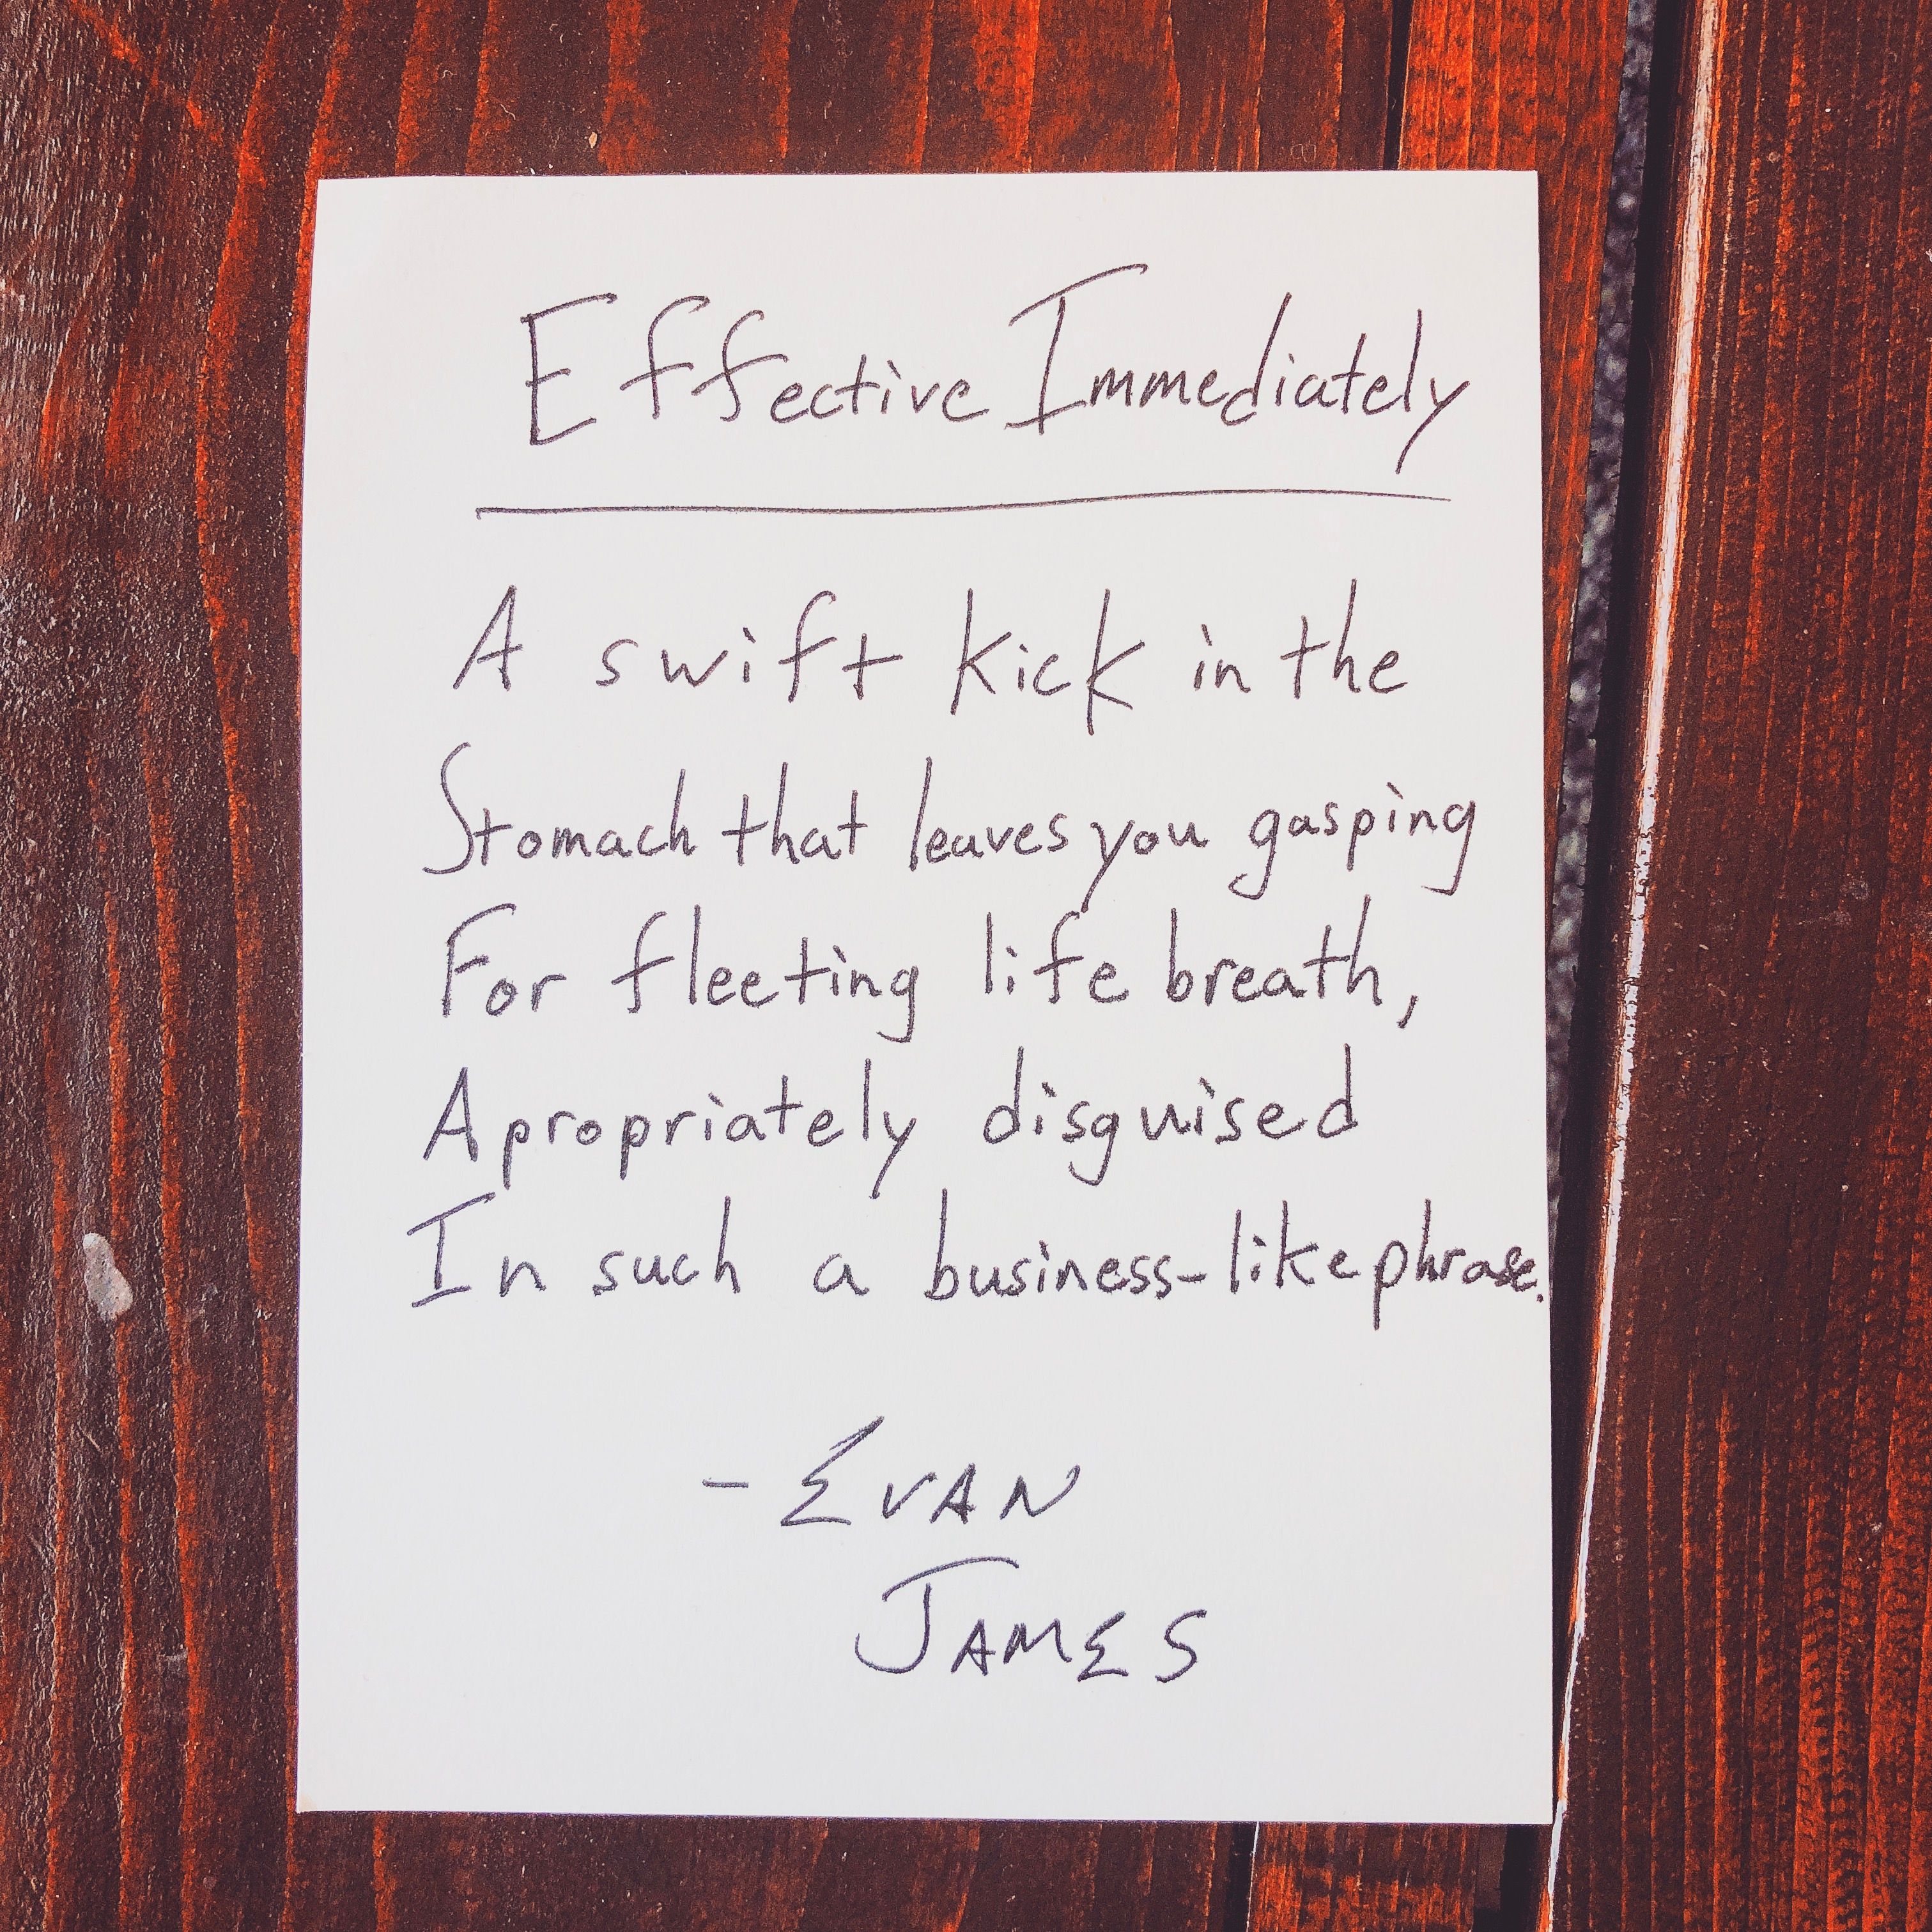 Effective Immediately
A swift kick in the
Stomach that leaves you gasping
For fleeting life breath,
Apropriately disguised
In such a business-like phrase.
- EVAN
JAMES